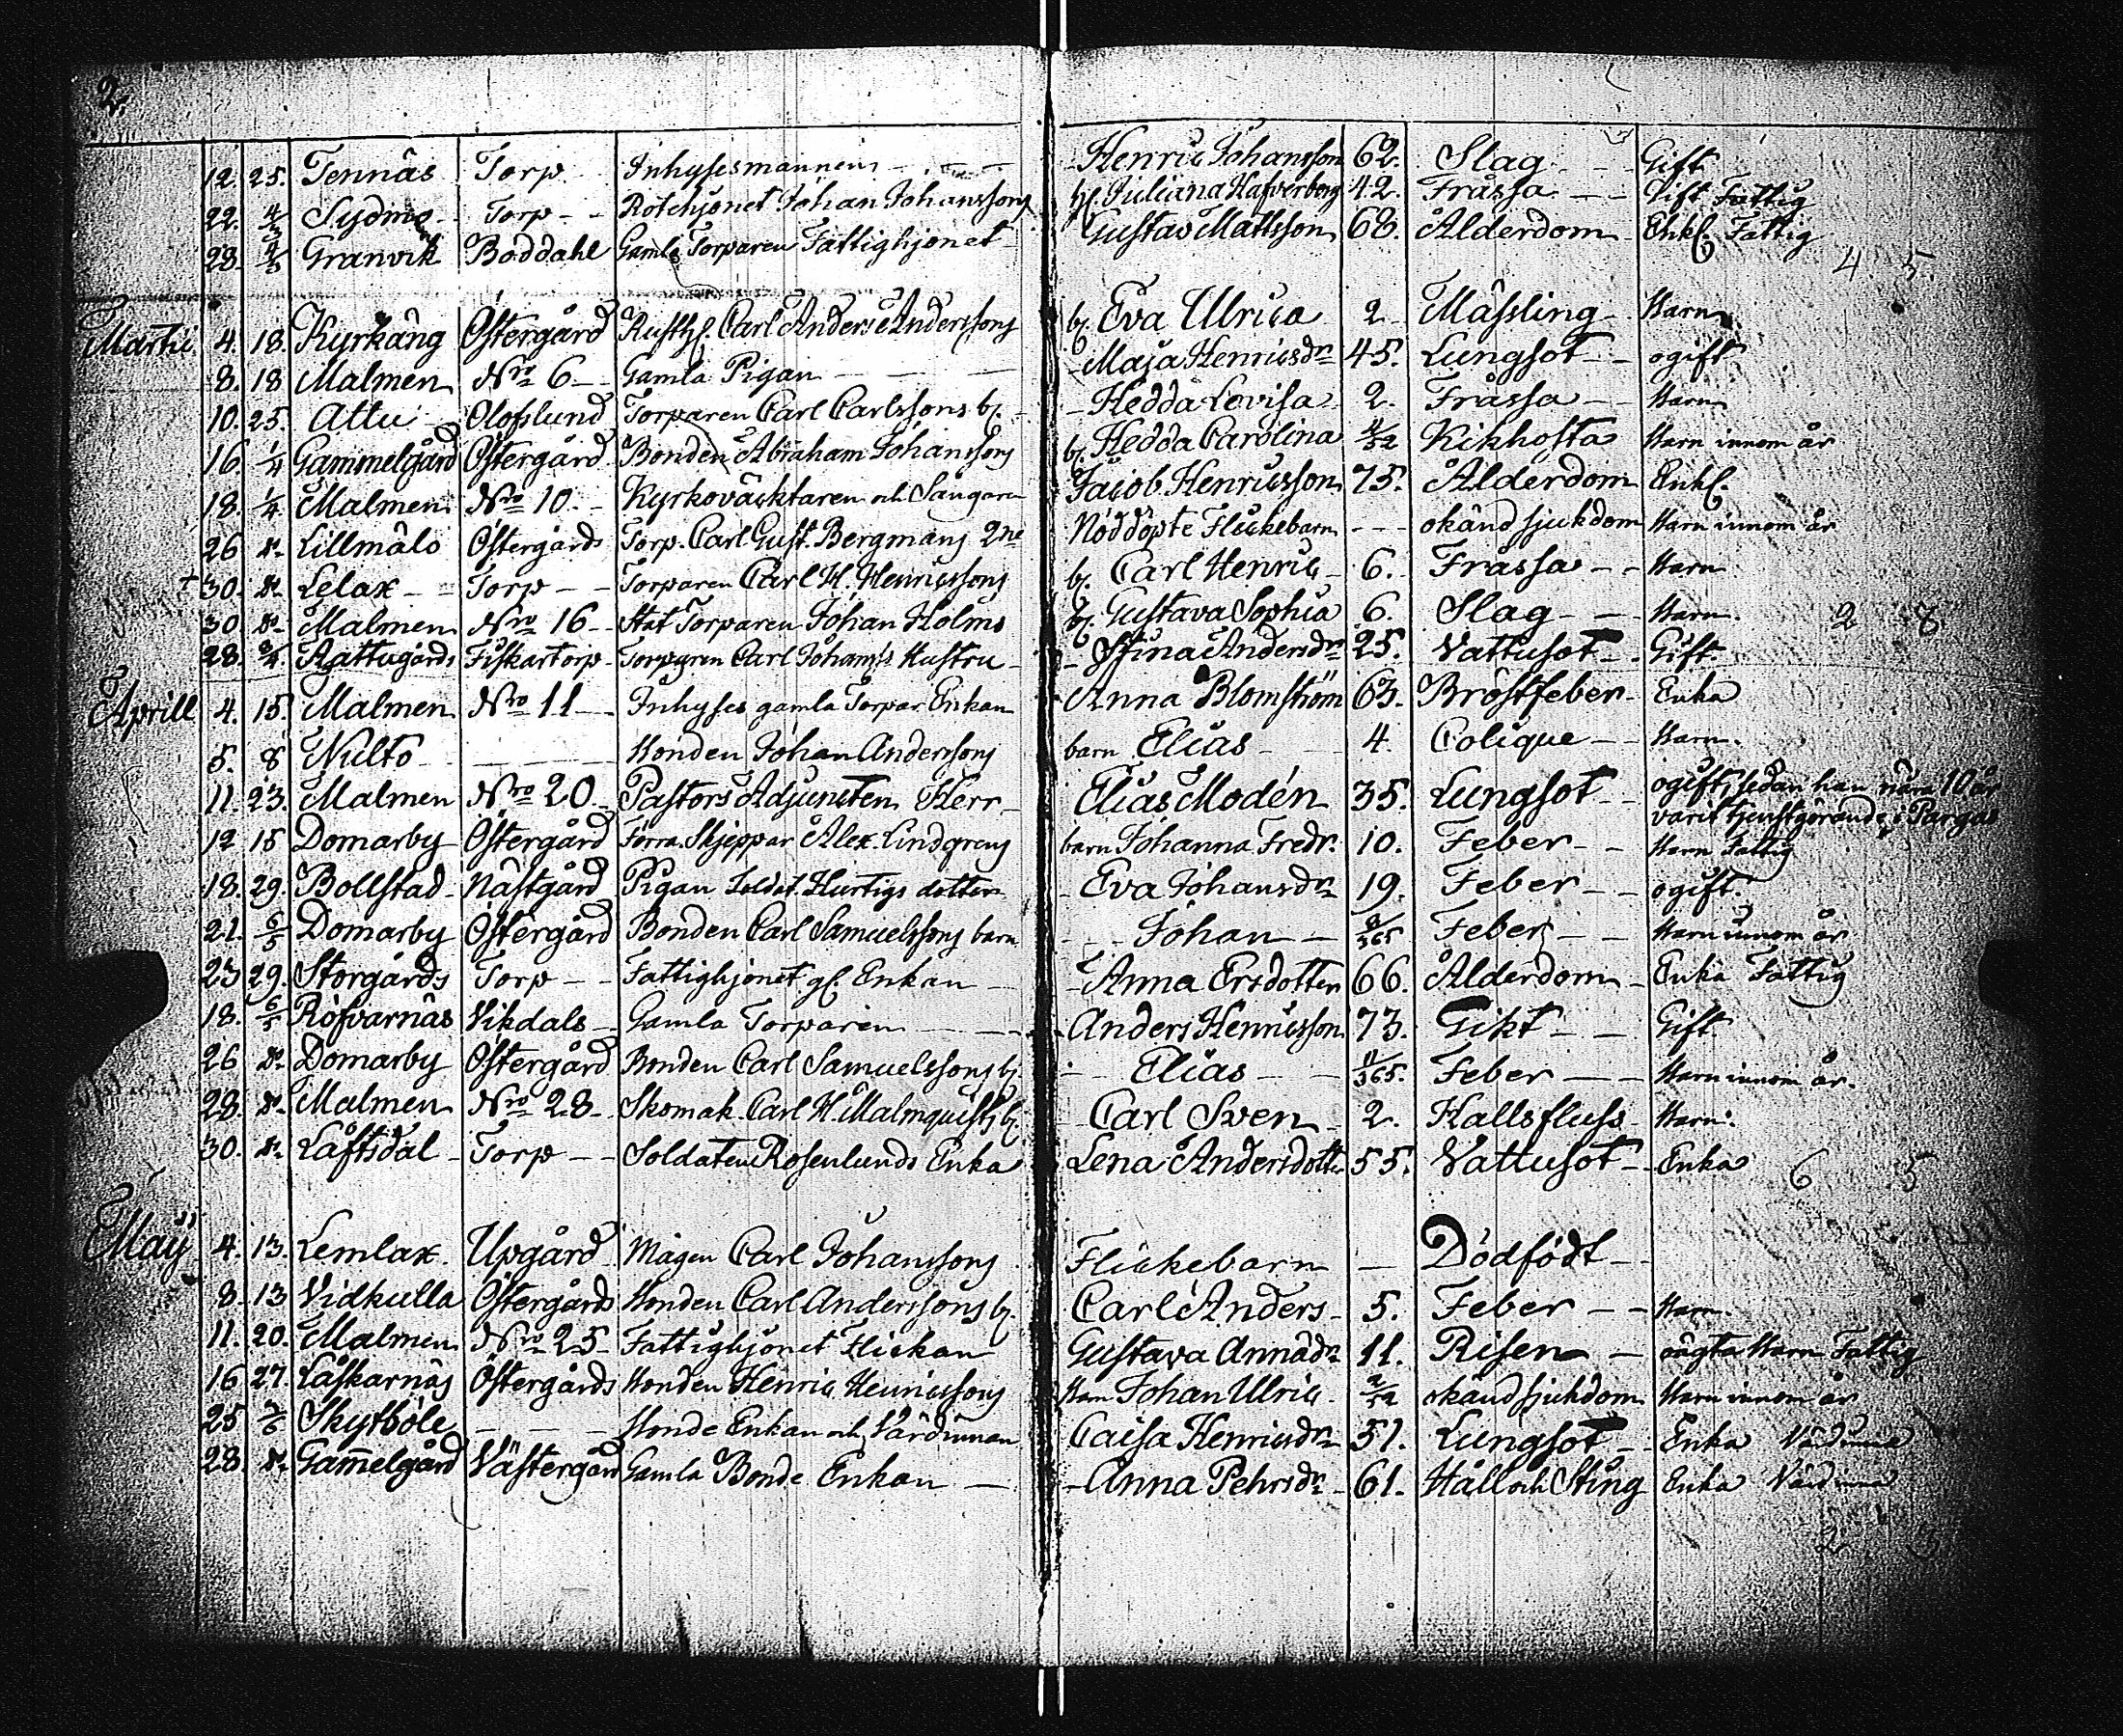 2.
12. 25. Tennäs Torp Inhysesmannen Henric Johansson 62. Slag Gift
22. 4/3 Sydmo Torp Rotehjonet Johan Johanssons h. Juliana Hafverberg 42. Frässa Gift Fattig
28. 4/3 Granvik Boddahl Gamla Torparen Fattighjonet Gustav Mattsson 68. Ålderdom Enkl. Fattig
4 5
Martii 4. 18. Kyrkäng Östergård Rusth. Carl Anders Anderssons b. Eva Ulrica 2 Mässling Barn
8. 18 Malmen Nro 6 Gamla Pigan Maja Henricsdr 45. Lungsot ogift
10. 25. Attu Olofslund Torparen Carl Carlssons b. Hedda Lovisa 2. Frässa Barn
16. 1/4 Gammelgård Östergård Bonden Abraham Johanssons b. Hedda Carolina 4/52 Kikhosta Barn innom år
18. 1/4 Malmen Nro 10 Kyrkoväcktaren och Sångaren Jacob Henricsson 75. Ålderdom Enkl.
26 do Lillmälö Östergårds Torp. Carl Gust. Bergmans 2ne Nöddöpte Flickebarn okänd sjukdom Barn innom år
+ 30. do Lelax Torp Torparen Carl H. Henricssons b. Carl Henric 6. Frässa Barn
30. do Malmen Nro 16 Stat Torparen Johan Holms b. Gustava Sophia 6. Slag Barn. 2 8
28. Rattugårds Fiskartorp Torparen Carl Hustru Stina Andersdr 25. Vattusot Gift.
Aprill 4. 15. Malmen Nro 11 Inhyses gamla Torpar Enkan Anna Blomström 63. Bröstfeber Enka
5. 8 Nulto Bonden Johan Anderssons barn Elias 4 Colique Barn.
11. 23. Malmen Nro 20. Pastors Adjuncten Herr Elias Modén 35. Lungsot ogift, sedan han nära 10 år
varit tjenstgörande i Pargas
12 15 Domarby Östergård Förra Skjeppar Alex. Lindgrens barn Johanna Fredr. 10. Feber Barn Fattig
18. 29. Bollstad Nästgård Pigan Soldat. Hurtigs dotter Eva Johansdr 19. Feber ogift.
21. 6/5 Domarby Östergård Bonden Carl Samuelssons barn Johan 8/365 Feber Barn innom år
23 29. Storgårds Torp Fattighjonet gl. Enkan Anna Ersdotter 66. Ålderdom Enka Fattig
18. 6/5 Röfvarnäs Vikdals Gamla Torparen Anders Henricsson 73. Gikt Gift
26 do Domarby Östergård Bonden Carl Samuelssons b. Elias 11/365. Feber Barn innom år.
28. do Malmen Nro 28 Skomak. Carl H. Malmquists b. Carl Sven 2. Hallsfluss Barn.
30. do Låftsdal Torp Soldaten Rosenlunds Enka Lena Andersdotter 55. Vattusot Enka 6 5
Maij 4. 13. Lemlax Upgård Mågen Carl Johanssons Flickebarn Dödfödt
8. 13 Vidkulla Östergårds Bonden Carl Anderssons b. Carl Anders 5. Feber Barn.
11. 20. Malmen Nro 25 Fattighjonet Flickan Gustava Annædr 11. Risen oägta Barn Fattig
16 27. Låskarnäs Östergårds Bonden Henric Henricssons Barn Johan Ulric 2/52 okänd sjukdom Barn innom år
25 Skytböle Bonde Enkan och Värdinnan Caisa Henricsdr 51. Lungsot Enka Värdinna
28. do Gammelgård Västergård Gamla Bonde Enkan Anna Pehrsdr 61. Håll och Sting Enka Värdinna
2